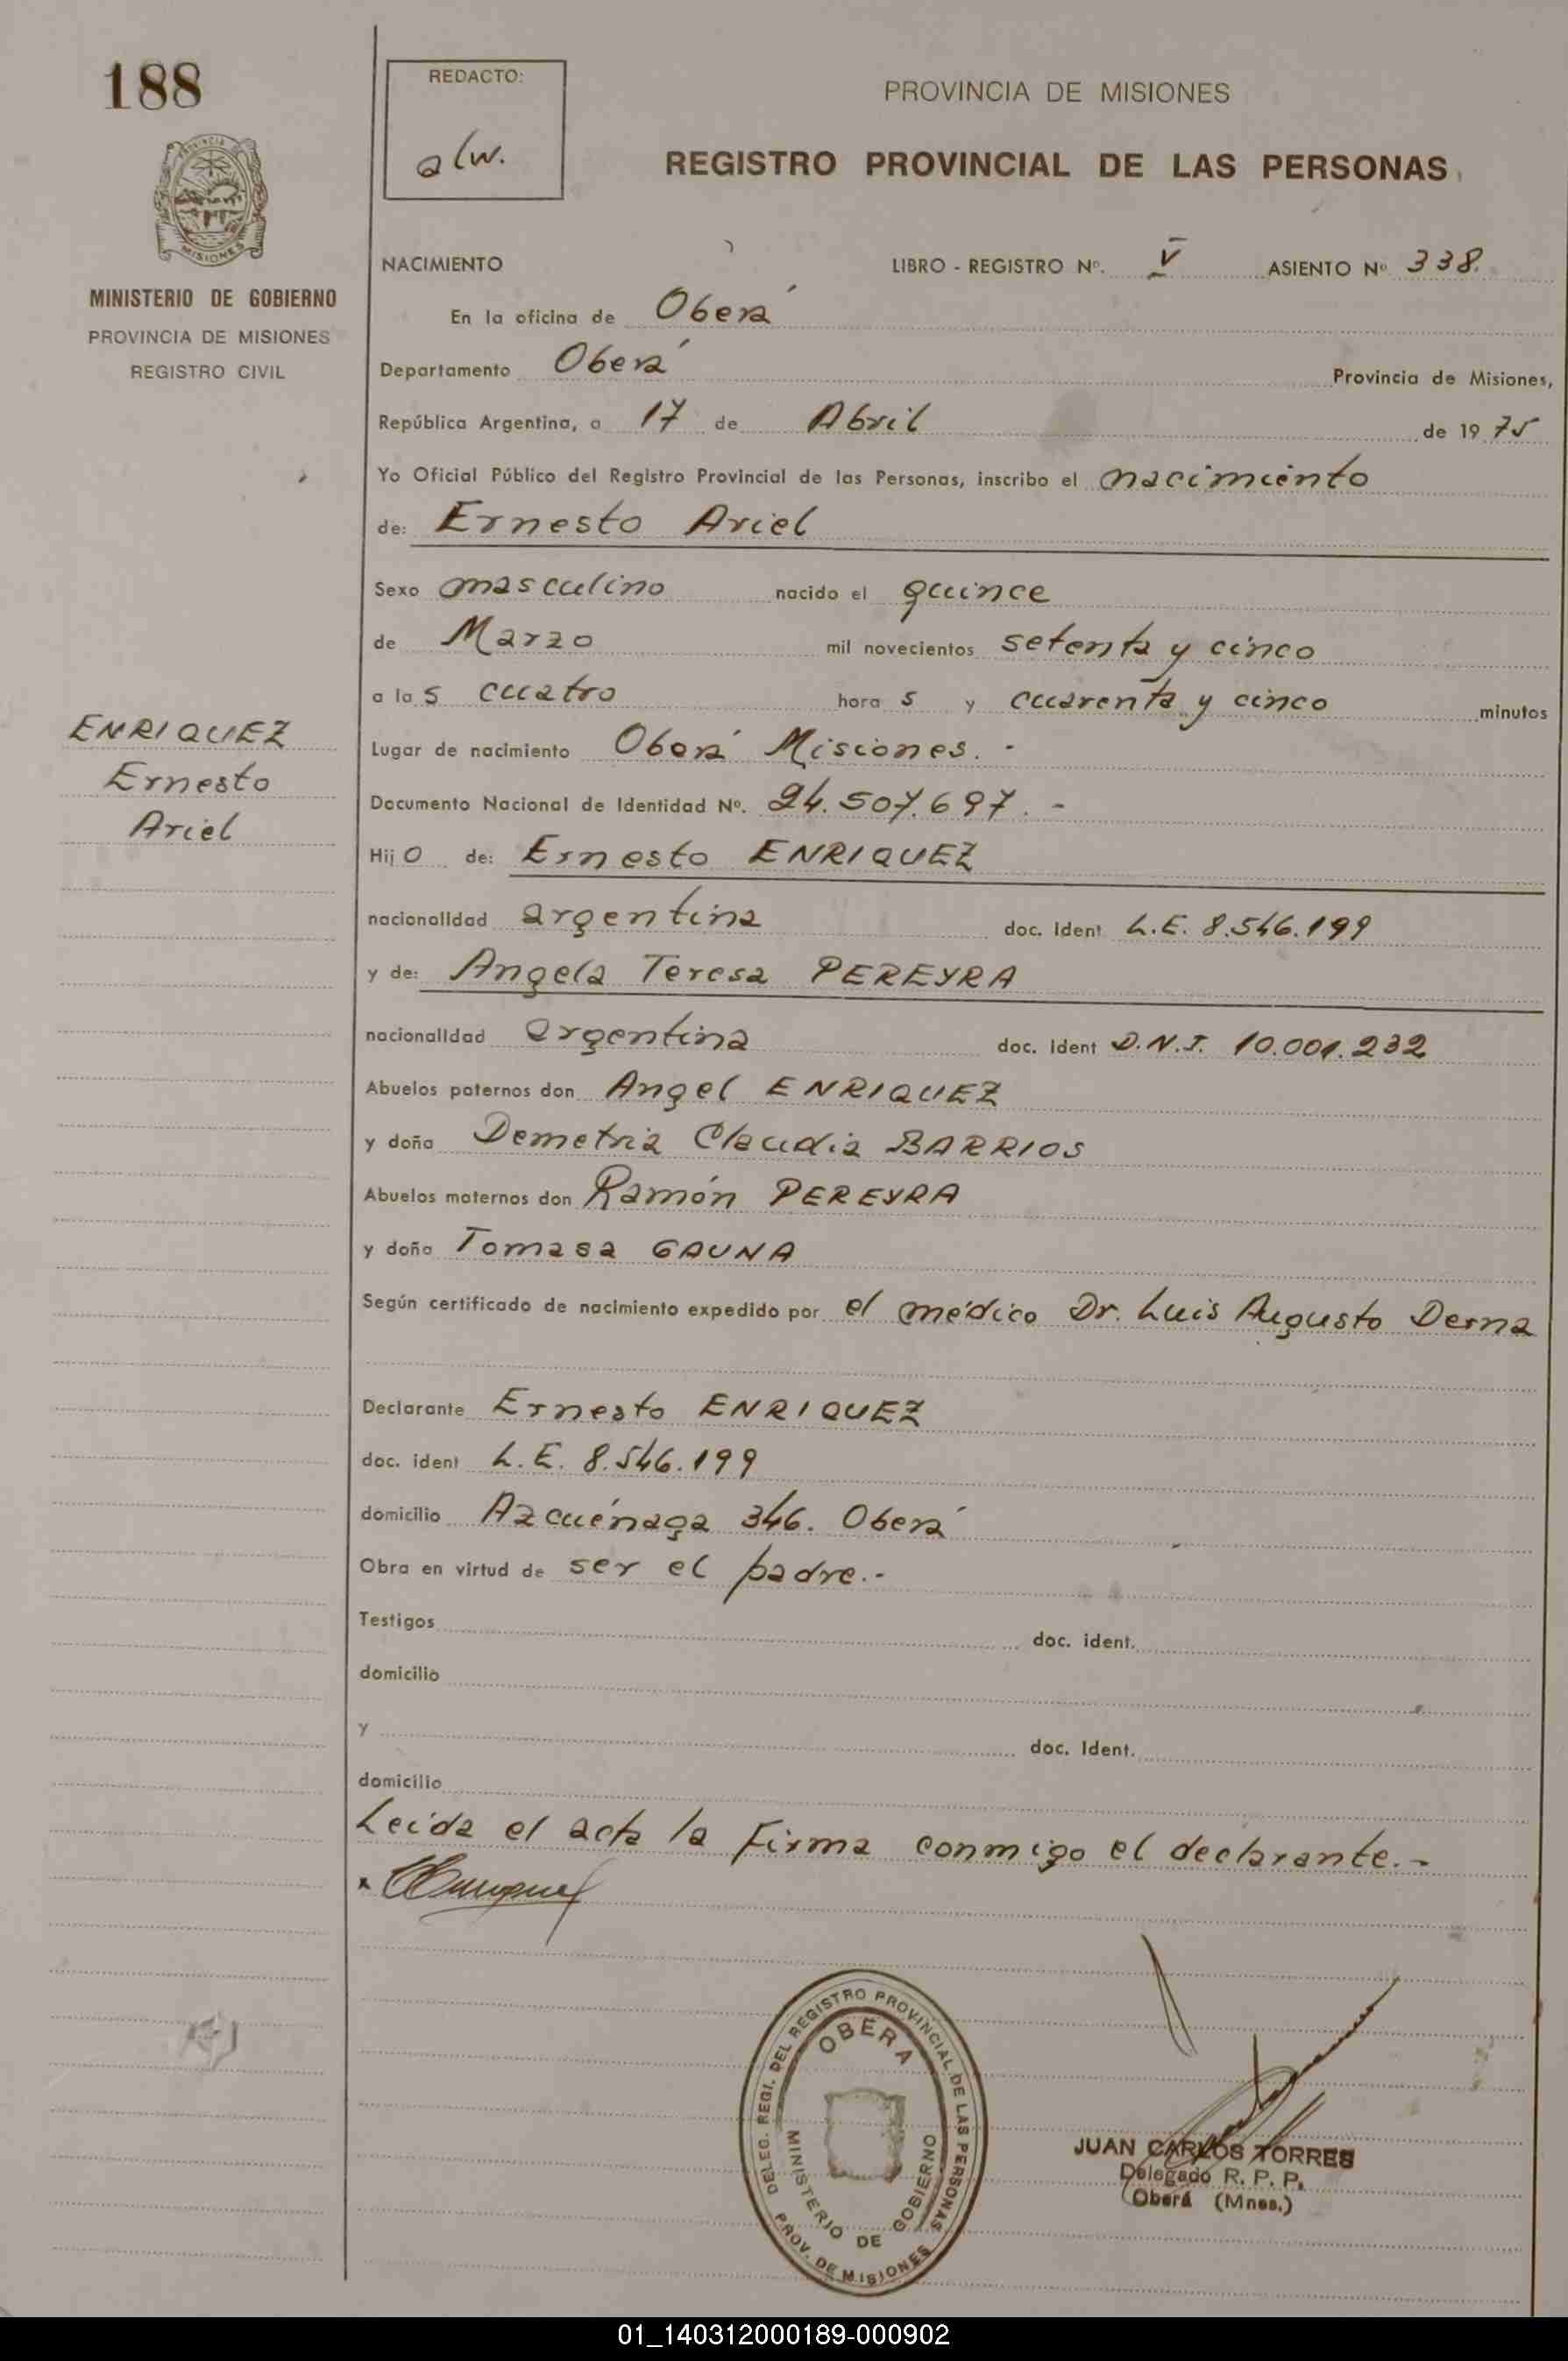 188
REDACTO:
alw.
PROVINCIA DE MISIONES
REGISTRO PROVINCIAL DE LAS PERSONAS
PROVINCIA DE
MISIONES
MINISTERIO DE GOBIERNO
PROVINCIA DE MISIONES
REGISTRO CIVIL
NACIMIENTO LIBRO - REGISTRO Nº. V ASIENTO Nº 338.
En la oficina de Oberá
Departamento Oberá Provincia de Misiones,
República Argentina, a 17 de Abril de 1975
Yo Oficial Público del Registro Provincial de las Personas, inscribo el nacimiento
de: Ernesto Ariel
Sexo masculino nacido el quince
de Marzo mil novecientos setenta y cinco
a las cuatro horas y cuarenta y cinco minutos
ENRIQUEZ
Ernesto
Ariel
Lugar de nacimiento Oberá Misiones. -
Documento Nacional de Identidad Nº. 24.507.697. -
Hijo de: Ernesto ENRIQUEZ
nacionalidad argentina doc. ident L.E. 8.546.199
y de: Angela Teresa PEREYRA
nacionalidad argentina doc. ident D.N.I. 10.001.232
Abuelos paternos don Angel ENRIQUEZ
y doña Demetria Claudia BARRIOS
Abuelos maternos don Ramón PEREYRA
y doña Tomasa GAUNA
Según certificado de nacimiento expedido por el médico Dr. Luis Augusto Derna
Declarante Ernesto ENRIQUEZ
doc. ident L.E. 8.546.199
domicilio Azcuénaga 346. Oberá
Obra en virtud de ser el padre.-
Testigos doc. ident.
domicilio
y doc. Ident.
domicilio
Leida el acta la Firma conmigo el declarante.-
DELEG. REGI. DEL REGISTRO PROVINCIAL DE LAS PERSONAS
OBERA
MINISTERIO DE GOBIERNO
PROV. DE MISIONES
JUAN CARLOS TORRES
Delegado R. P. P.
Oberá (Mnes.)
01_140312000189-000902